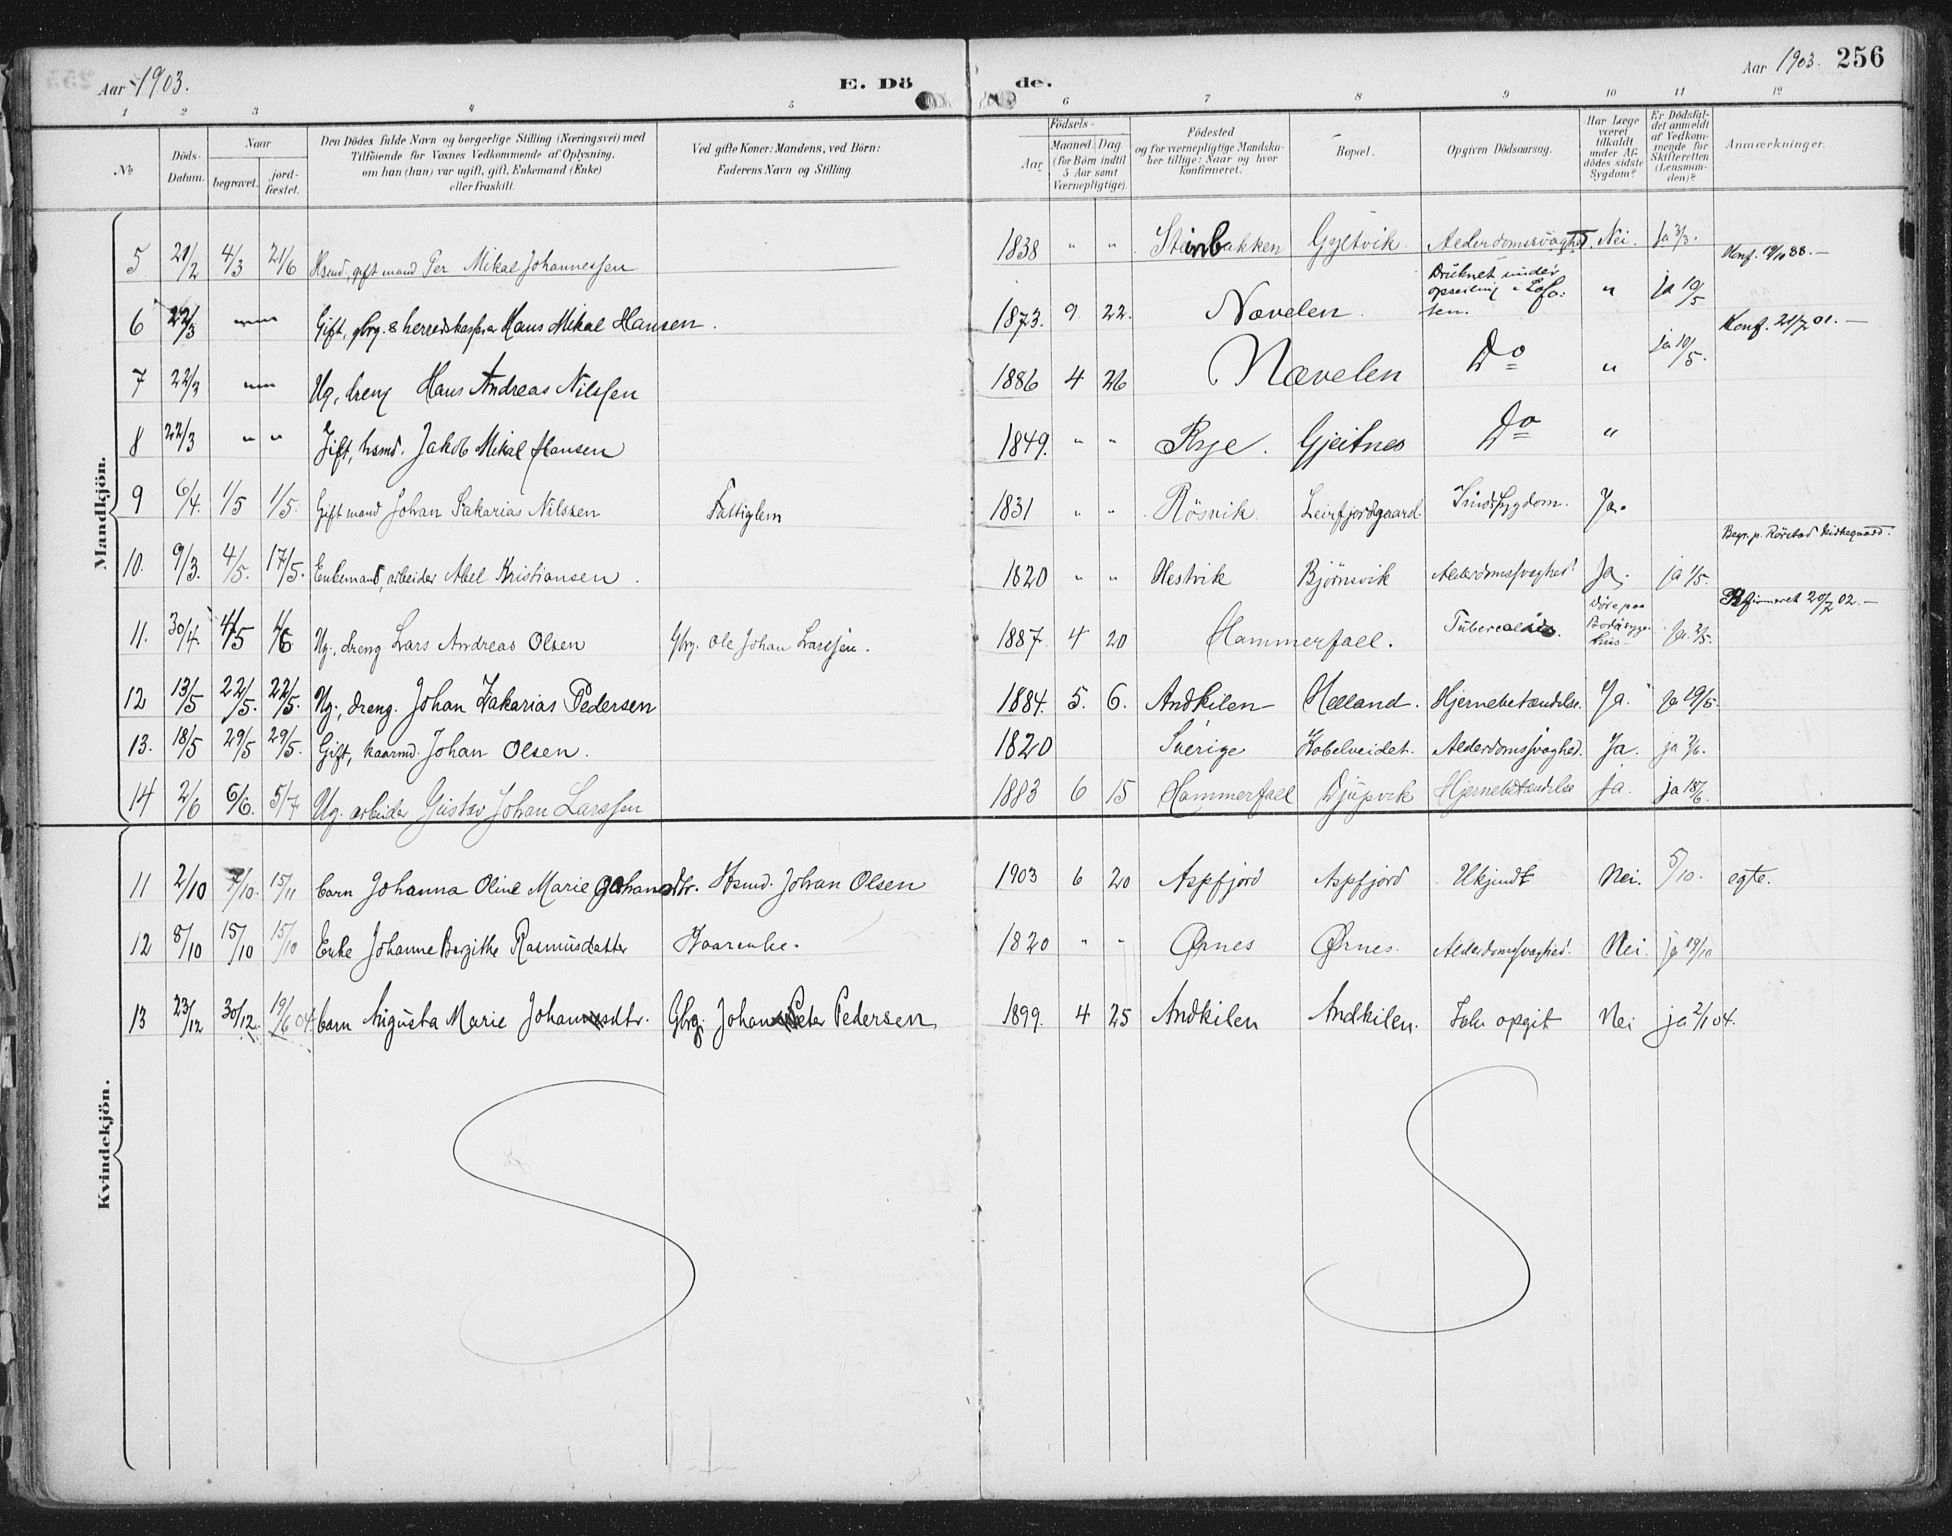 Aar 1903. E. Dö de. Aar 1903. 256
1 2 3 4 5 6 7 8 9 10 11 12
No
Döds-Datum.
Naar begravet. jord-fæstet.
Den Dödes fulde Navn og borgerlige Stilling (Næringsvei) med
Tilföiende for Voxnes Vedkommende af Oplysning,
om han (hun) var ugift, gift, Enkemand (Enke)
eller fraskilt.
Ved gifte Koner: Mandens, ved Börn:
Faderens Navn og Stilling
Födsels-
Aar Maaned. Dag
(for Börn indtil 5 Aar samt Værnepligtige).
Födested
og for værnepligtige Mandska-
ber tillige: Naar og hvor
konfirmeret.
Bopæl.
Opgiven Dödsaarsag.
Har Læge været tilkaldt under Af-dödes sidste Sygdom?
Er Dödsfal-det anmeldt af Vedkom-mende for Skifteretten (Lensman-den)?
Anmærkninger.
Mandkjön.
5 21/2 4/3 21/6 Hsmd, gift mand Per Mikal Johannessen 1838 " " Steinbakken Gyltvik. Alderdomssvaghed. Nei. Ja 3/3.
Konf. 19/10 88. —
6 22/3 " " Gift, gbrg. & herredskasserer Hans Mikal Hansen. 1873. 9 22. Nævelen. Druknet under opseiling i Lofo: ten. " ja 10/5
Konf. 21/7 01. —
7 22/3 " " Ug, dreng Hans Andreas Nilssen 1886 4 26 Nævelen Do " ja 10/5.
8 22/3 " " Gift, hsmd. Jakob Mikal Hansen 1849. " " Rye. Gjeitnes Do "
9 6/4. 1/5 1/5. Gift mand Johan Sakarias Nilssen Fattiglem 1831 " " Rösvik. Leirfjordgaard. Sindssygdom. Ja.
Begr. p. Rörstad Kirkegaard.
10. 9/3. 4/5. 17/5. Enkemand, arbeider Abel Kristiansen. 1820 " " Hestvik Bjørnsvik Alderdomssvaghed Ja. ja 1/5.
Kfirmeret 20/7 02. —
11. 30/4. 4/5 1/6 Ug., dreng Lars Andreas Olsen Gbrg. Ole Johan Larssen. 1887. 4 20 Hammerfall. Tuberculose. Döde paa Bodö syge hus Ja. 2/5.
12 13/5 22/5. 22/5. Ug., dreng. Johan Zakarias Pedersen 1884. 5. 6. Andkilen Helland. Hjernebetændelse. Ja. Ja 19/5.
13. 18/5 29/5 29/5. Gift, kaarmd. Johan Olsen. 1820 Sverige Kobelveidet. Alderdomssvaghed. Ja. ja 2/6.
14 2/6 6/6. 5/7 Ug. arbeider Gustav Johan Larssen 1883 6 15 Hammerfall Djupvik Hjernebetændelse ja. ja 18/6.
Kvindekjön.
11 2/10 7/10. 15/11 barn Johanna Oline Marie Johansdtr. Hsmd. Johan Olsen 1903 6 20 Aspfjord Aspfjord Ukjendt Nei. 5/10. egte.
12 8/10 15/10 15/10 Enke Johanne Bergithe Rasmusdatter Kaarenke. 1820 " " Ørnes Ørnes. Alderdomssvaghed. Nei. ja 19/10
13 23/12 30/12. 19/6 04 barn Augusta Marie Johansdtr. Gbrg. Johan Peter Pedersen 1899. 4 25 Andkilen Andkilen. Ikke opgit Nei ja 2/1 04.